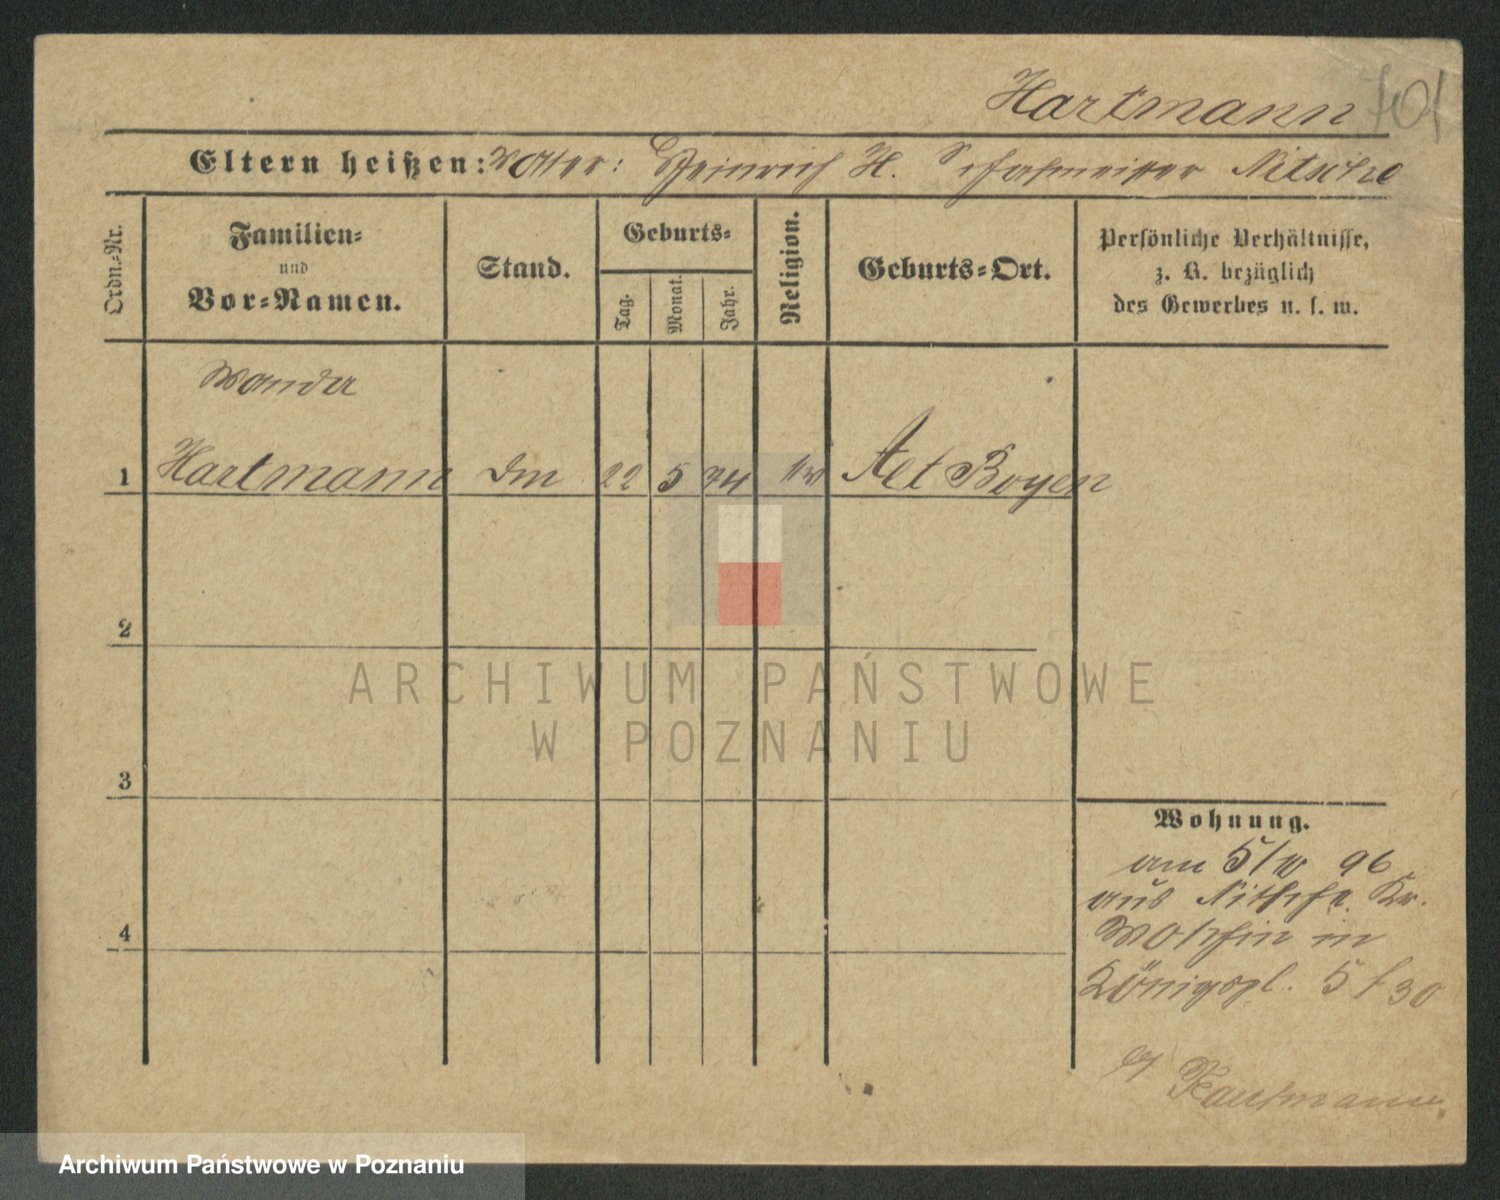 Hartmann
701
Eltern heißen: Vater: Heinrich H. Schafmeister Nitsche
Ordn.-Nr.
Familien-
und
Vor-Namen.
Stand.
Geburts-
Tag.
Monat.
Jahr.
Religion.
Geburts-Ort.
Persönliche Verhältnisse,
z. B. bezüglich
des Gewerbes u. s. w.
Wanda
1 Hartmann 22 5 74 Alt Boyen
2
3
4
Wohnung.
am 5/10 96
aus Nitsche Kr.
in
Königspl. 5/30
Kaufmann
ARCHIWUM PAŃSTWOWE
W POZNANIU
Archiwum Państwowe w Poznaniu